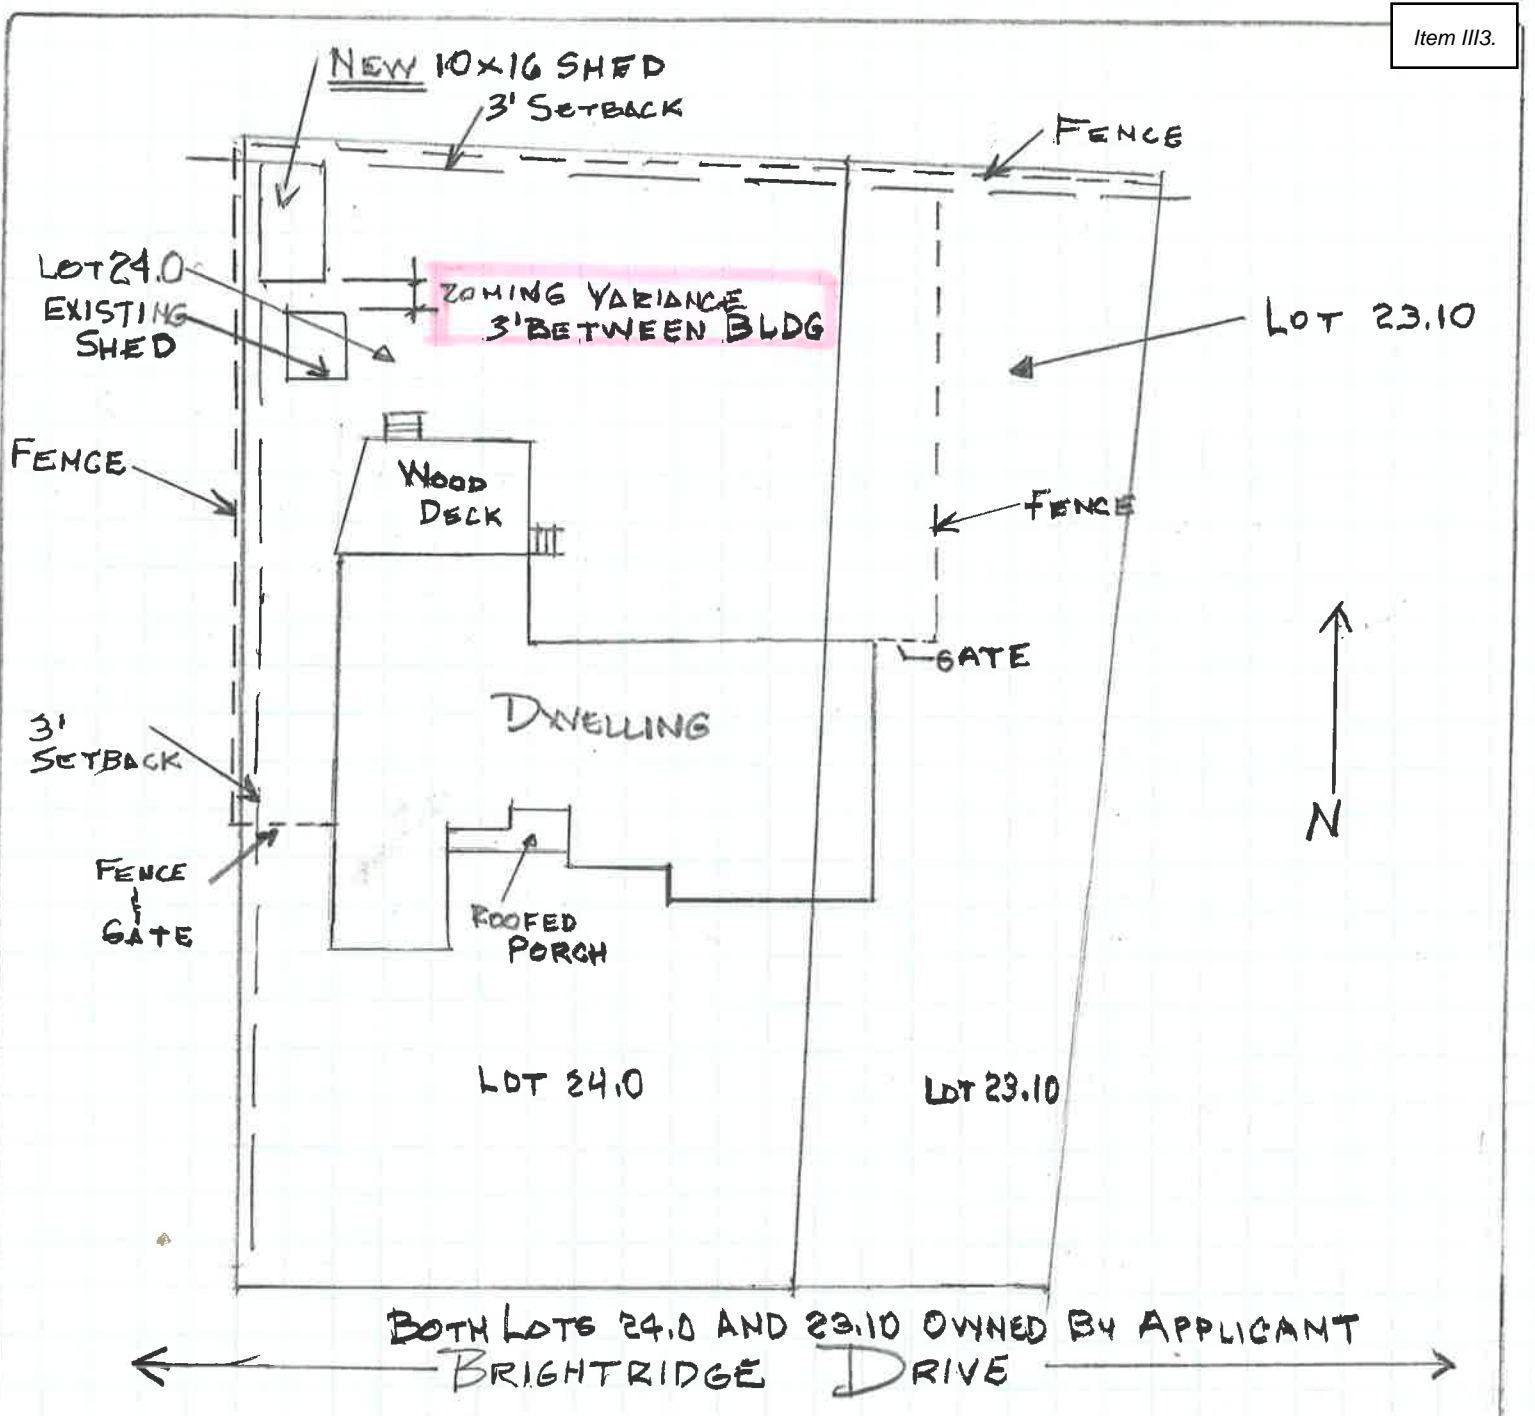 Item III3.
NEW 10x16 SHED
3' SETBACK
FENCE
LOT 24.0
EXISTING
SHED
ZONING VARIANCE
3' BETWEEN BLDG
LOT 23.10
FENCE
WOOD
DECK
FENCE
GATE
DWELLING
3'
SETBACK
N
FENCE
&
GATE
ROOFED
PORCH
LOT 24.0
LOT 23.10
BOTH LOTS 24.0 AND 23.10 OWNED BY APPLICANT
BRIGHTRIDGE DRIVE